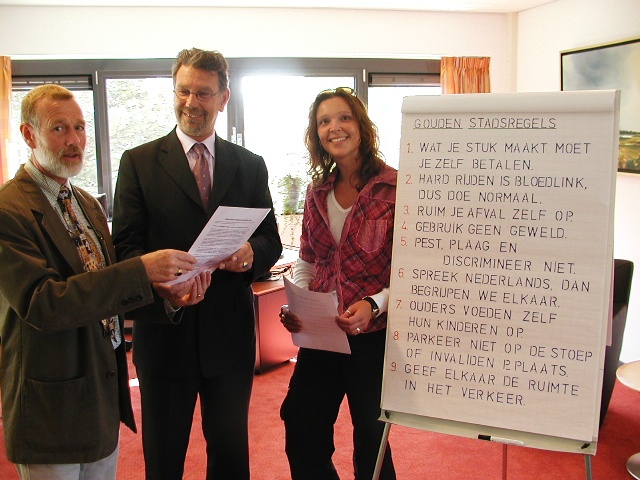 GOUDEN STADSREGELS
1. WAT JE STUK MAAKT MOET
JE ZELF BETALEN.
2. HARD RIJDEN IS BLOEDLINK,
DUS DOE NORMAAL.
3. RUIM JE AFVAL ZELF OP.
4. GEBRUIK GEEN GEWELD.
5. PEST, PLAAG EN
DISCRIMINEER NIET.
6 SPREEK NEDERLANDS, DAN
BEGRIJPEN WE ELKAAR.
7. OUDERS VOEDEN ZELF
HUN KINDEREN OP.
8 PARKEER NIET OP DE STOEP
OF INVALIDEN P.PLAATS.
9. GEEF ELKAAR DE RUIMTE
IN HET VERKEER.